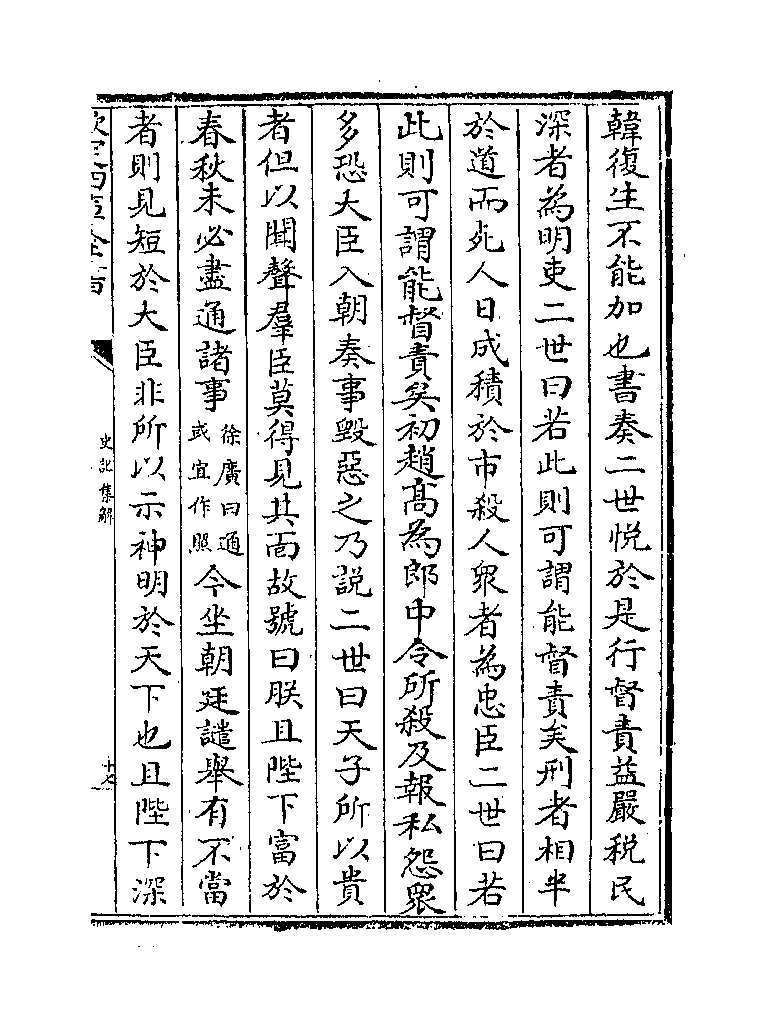 韓復生不能加也書奏二世悅於是行督責益嚴税民
深者為明吏二世曰若此則可謂能督責矣刑者相半
於道而死人日成積於市殺人衆者為忠臣二世曰若
此則可謂能督責矣初趙高為郎中令所殺及報私怨衆
多恐大臣入朝奏事毀惡之乃説二世曰天子所以貴
者但以聞聲羣臣莫得見其面故號曰朕且陛下富於
春秋未必盡通諸事徐廣曰通或宜作照今坐朝廷譴舉有不當
者則見短於大臣非所以示神明於天下也且陛下深
欽定四庫全書
史記集解
十七